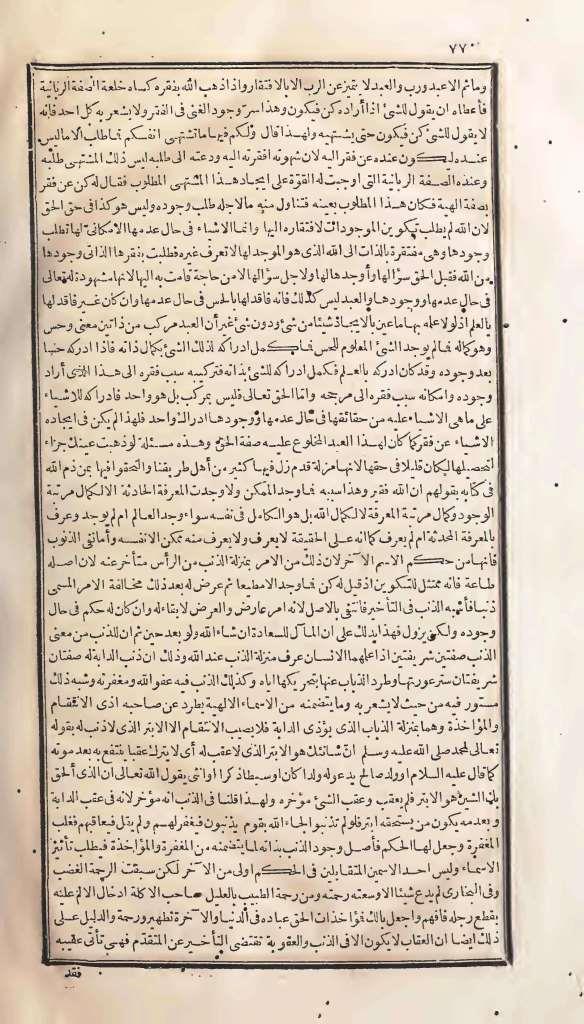 ٧٧
وما ثم الا عبد ورب والعبد لا يتميز عن الرب الا بالافتقار واذا ذهب الله بفقره كساه خلعة الصفة الربانية
فأعطاه ان يقول للشئ اذا أراده كن فيكون وهذا سر وجود الغنى فى الفقر ولا يشعر به كل أحد فانه
لا يقول للشئ كن فيكون حتى يشتهيه ولهذا قال ولكم فيها ما تشتهى انفسكم فما طلب الا ما ليس
عنده ليكون عنده عن فقر اليه لان شهوته أفقرته اليه ودعته الى طلبه ليس ذلك المشتهى طلبه
وعنده الصفة الربانية التى أوجبت له القوة على ايجاد هذا المشتهى المطلوب فقال له كن عن فقر
بصفة الهية فكان هذا المطلوب بعينه فتناول منه ما لاجله طلب وجوده وليس هو كذا فى حق الحق
لان الله لم يطلب تكوين الموجودات لافتقاره اليها وانما الاشياء فى حال عدمها الامكانى لها تطلب
وجودها وهى مفتقرة بالذات الى الله الذى هو الموجد لها لا تعرف غيره فطلبت بفقرها الذاتى وجودها
من الله فقبل الحق سؤالها وأوجدها لها ولاجل سؤالها لا من حاجة قامت به اليها لانها مشهودة له تعالى
فى حال عدمها ووجودها والعبد ليس كذلك فانه فاقد لها بالحس فى حال عدمها وان كان غير فاقد لها
بالعلم اذ لولا علمه بها ما عين بالايجاد شيئا من شئ ودون شئ غير أن العبد مركب من ذاتين معنى وحس
وهو كماله فما لم يوجد الشئ المعلوم للحس فما يكمل ادراكه لذلك الشئ بكمال ذاته فاذا ادركه حسا
بعد وجوده وقد كان ادركه بالعلم فكمل ادراكه للشئ بذاته فتركيبه سبب فقره الى هذا الذى أراد
وجوده وامكانه سبب فقره الى مرجحه واما الحق تعالى فليس بمركب بل هو واحد فادراكه للاشياء
على ماهى الاشياء عليه من حقائقها فى حال عدمها ووجودها ادراك واحد فلهذا لم يكن فى ايجاده
الاشياء عن فقر كما كان لهذا العبد المخلوع عليه صفة الحق وهذه مسئلة لو ذهبت عينك جزاء
لتحصيلها لكان قليلا فى حقها لانها مزلة قدم زل فيها كثير من أهل طريقنا والتحقوا فيها بمن ذم الله
فى كتابه بقولهم ان الله فقير وهذا سببه فما وجد الممكن ولا وجدت المعرفة الحادثة الا لكمال مرتبة
الوجود وكمال مرتبة المعرفة لا لكمال الله بل هو الكامل فى نفسه سواء وجد العالم ام لم يوجد وعرف
بالمعرفة المحدثة ام لم يعرف كما انه على الحقيقة لا يعرف ولا يعرف منه ممكن الا نفسه وأما نتى الذنوب
فانها من حكم الاسم الآخر لان ذلك من الامر بمنزلة الذنب من الرأس متأخرة عنه لان اصله
طاعة فانه ممتثل للتكوين اذ قيل له كن فما وجد الا مطيعا ثم عرض له بعد ذلك مخالفة الامر المسمى
ذنبا فأشبه الذنب فى التأخير فانتفى بالاصل لانه امر عارض والعرض لا بقاء له وان كان له حكم فى حال
وجوده ولكن يزول فهذا يدلك على ان المآل للسعادة ان شاء الله ولو بعد حين ثم ان للذنب من معنى
الذنب صفتين شريفتين اذا علمهما الانسان عرف منزلة الذنب عند الله وذلك ان ذنب الدابة له صفتان
شريفتان ستر عورتها وطرد الذباب عنها بتحريكها اياه وكذلك الذنب فيه عفو الله ومغفرته وشبه ذلك
مستور فيه من حيث لا يشعر به وما يتضمنه من الاسماء الالهية يطرد عن صاحبه اذى الانتقام
والمؤاخذة وهما بمنزلة الذباب الذى يؤذى الدابة فلا يصيب الانتقام الا الابتر الذى لا ذنب له يقوله
تعالى لمحمد صلى الله عليه وسلم ان شانئك هو الابتر الذى لا عقب له أى لا يترك عقبا ينتفع به بعد موته
كما قال عليه السلام او ولد صالح يدعو له ولدا كان او سبطا ذكرا او انثى يقول الله تعالى ان الذى ألحق
بك الشين هو الابتر فلم يعقب وعقب الشئ مؤخره ولهذا قلنا فى الذنب انه مؤخر لانه فى عقب الدابة
وبعدمه يكون من يستحقه ابتر فلو لم تذنبوا لجاء الله بقوم يذنبون فيغفر لهم ولم يقل فيعاقبهم فغلب
المغفرة وجعل لها الحكم فأصل وجود الذنب بذاته لما يتضمنه من المغفرة والمؤاخذة فيطلب تأثير
الاسماء وليس احد الاسمين المتقابلين فى الحكم اولى من الآخر لكن سبقت الرحمة الغضب
وفى البخارى لم يدع شيئا الا وسعته رحمته ومن رحمة الطبيب بالعليل صاحب الاكلة ادخال الالم عليه
بقطع رجله فافهم واجعل بالك فمؤاخذات الحق عباده فى الدنيا والآخرة تطهير ورحمة والدليل على
ذلك ايضا ان العقاب لا يكون الا فى الذنب والعقوبة تقتضى التأخير عن المتقدم فهى تأتى عقيبه
فقد